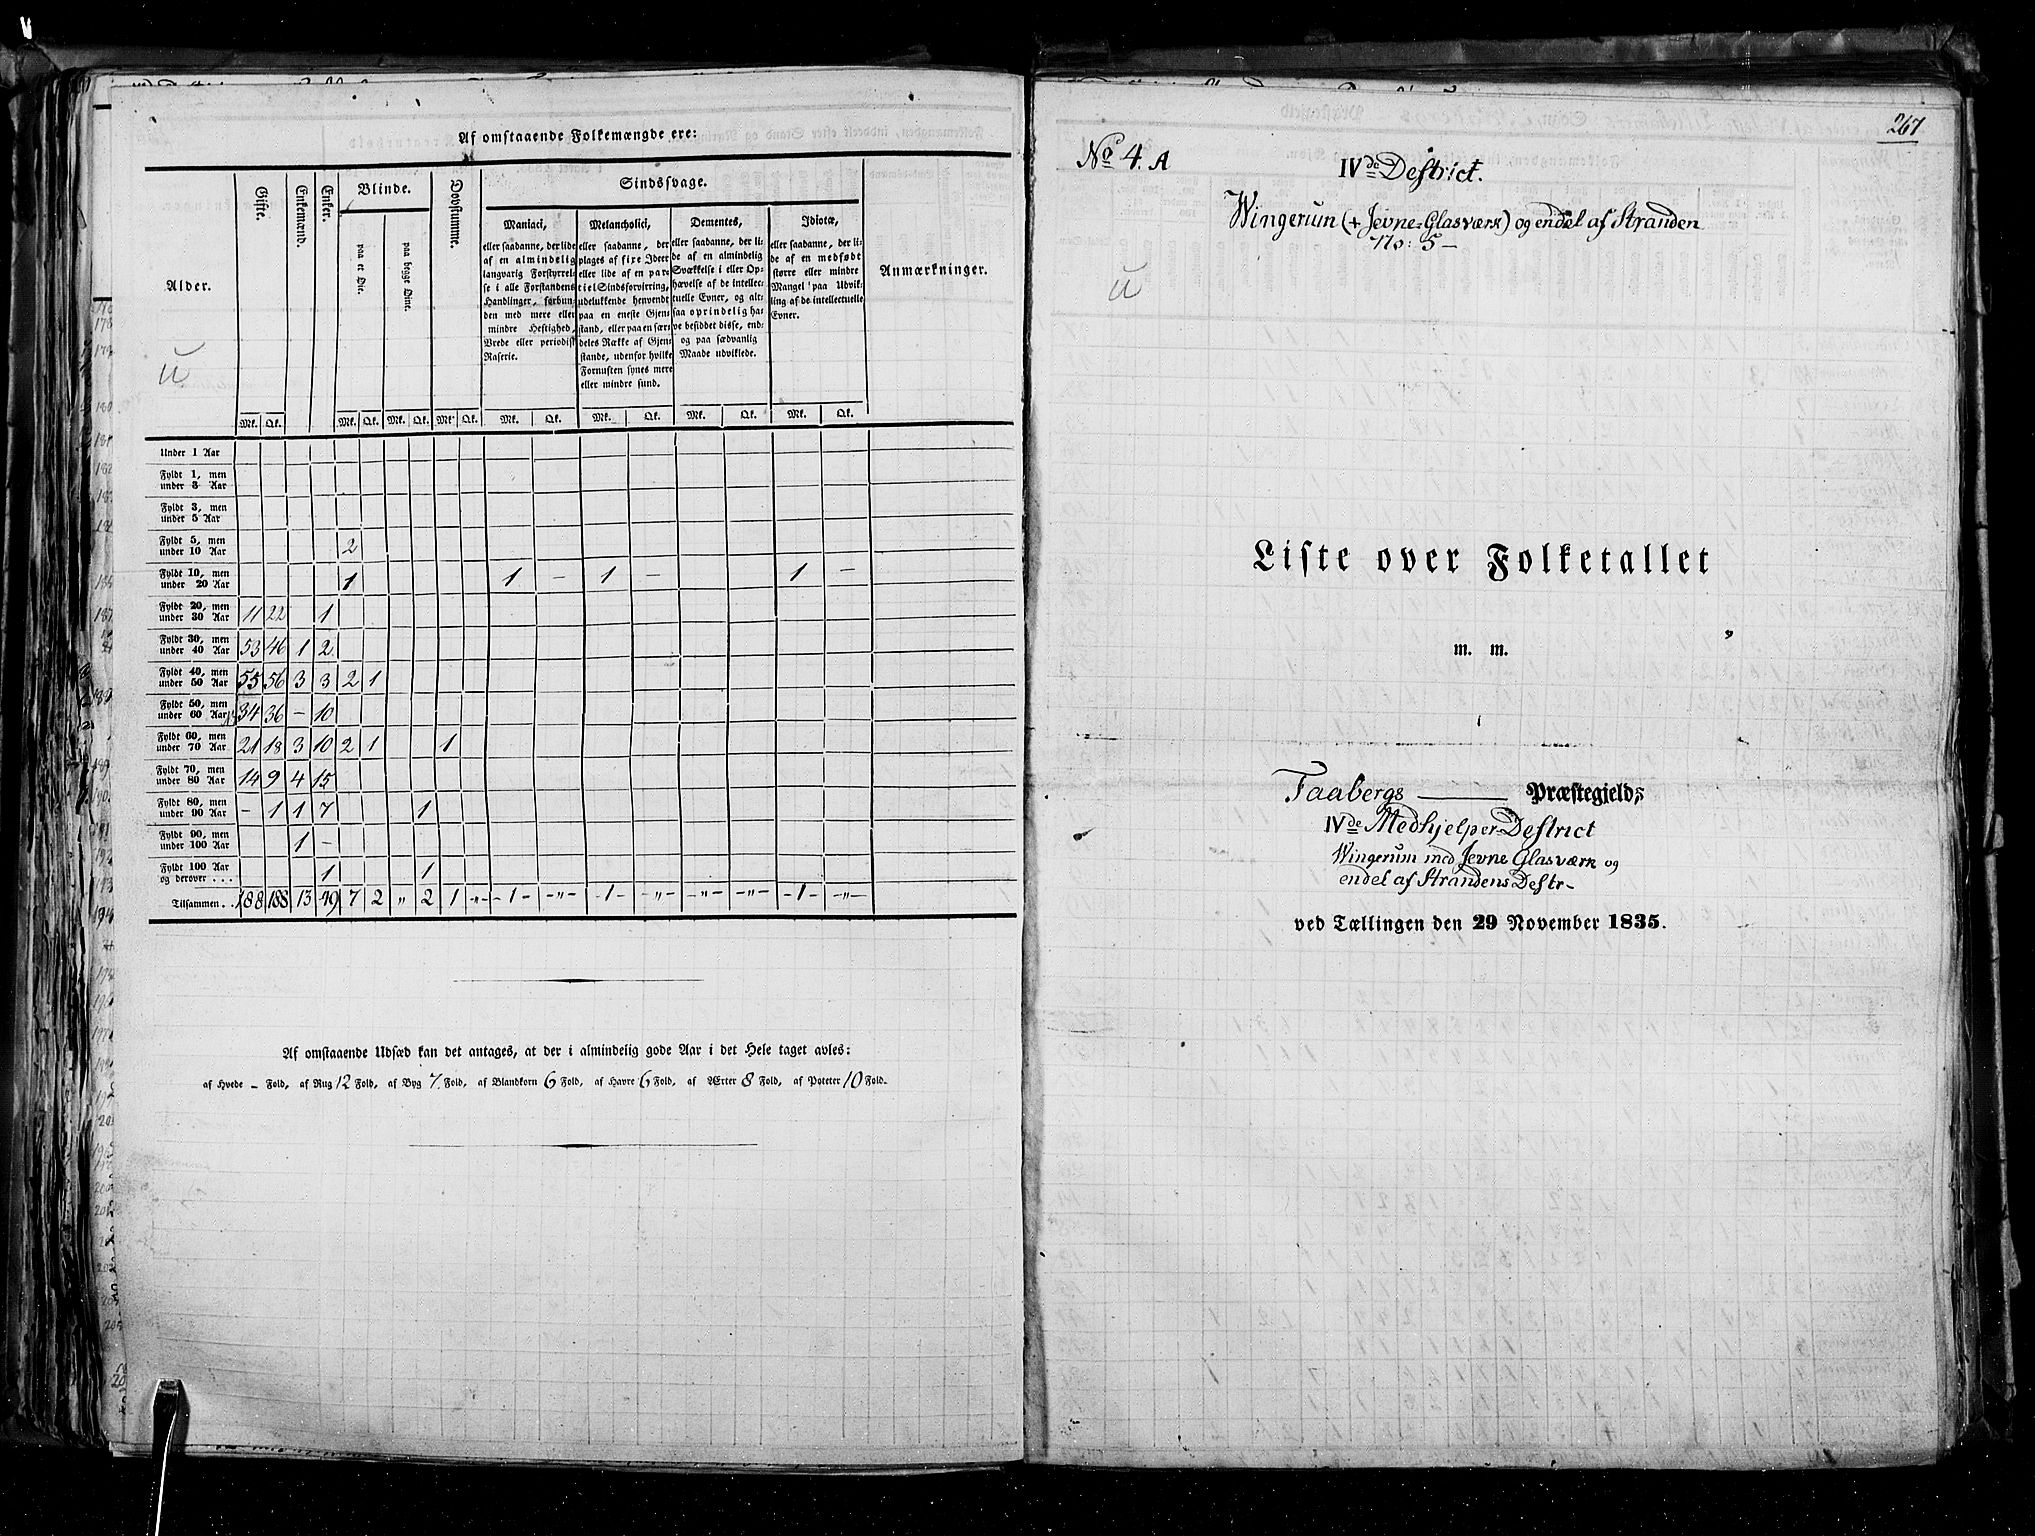 Af omstaaende Folkemængde ere:
Alder. | Gifte. | Enkemænd. | Enker. | Blinde. | Døvstumme. | Sindssvage. | Anmærkninger.
paa et Øie. | paa begge Øine.
Maniaci, eller saadanne, der lide af en almindelig langvarig Forstyrrelse i alle Forstandens Handlinger, forbunden med mere eller mindre Heftighed, Vrede eller periodisk Raserie.
Melancholici, eller saadanne, der plages af fixe Ideer eller lide af en partiel Sindsforvirring, udelukkende henvendt paa en eneste Gjenstand, eller paa en særdeles Række af Gjenstande, udenfor hvilke Fornuften synes mere eller mindre sund.
Dementes, eller saadanne, der lide af en almindelig Svækkelse i eller Ophævelse af de intellectuelle Evner, og altsaa oprindelig have besiddet disse, endog paa sædvanlig Maade udviklede.
Idiotæ, eller saadanne, der lide af en medfødt større eller mindre Mangel paa Udvikling af de intellectuelle Evner.
U
Mk. Qk. | Mk. Qk. | Mk. Qk. | Mk. Qk. | Mk. Qk. | Mk. Qk. | Mk. Qk. | Mk. Qk.
Under 1 Aar
Fyldt 1, men under 3 Aar
Fyldt 3, men under 5 Aar
Fyldt 5, men under 10 Aar 2
Fyldt 10, men under 20 Aar 1 1 – 1 – 1 –
Fyldt 20, men under 30 Aar 11 22 1
Fyldt 30, men under 40 Aar 53 46 1 2
Fyldt 40, men under 50 Aar 55 56 3 3 2 1
Fyldt 50, men under 60 Aar 34 36 – 10
Fyldt 60, men under 70 Aar 21 18 3 10 2 1 1
Fyldt 70, men under 80 Aar 14 9 4 15
Fyldt 80, men under 90 Aar – 1 1 7 1
Fyldt 90, men under 100 Aar 1 –
Fyldt 100 Aar og derover . . . 1 1
Tilsammen . . 188 188 13 49 7 2 " 2 1 -"- -1- -"- -1- -"- -"- -"- -1- -"-
Af omstaaende Udsæd kan det antages, at der i almindelig gode Aar i det Hele taget avles:
af Hvede – Fold, af Rug 12 Fold, af Byg 7. Fold, af Blandkorn 6 Fold, af Havre 6 Fold, af Ærter 8 Fold, af Poteter 10 Fold.
267
No 4. A
IVde Destrict.
Wingerum (+ Jevne-Glasværk) og endel af Stranden
No: 5 –
U
Liste over Folketallet
m. m.
Faabergs Præstegjelds
IVde Medhjelper-Destrict
Wingerum med Jevne Glasværk og
endel af Strandens Destr-
ved Tællingen den 29 November 1835.